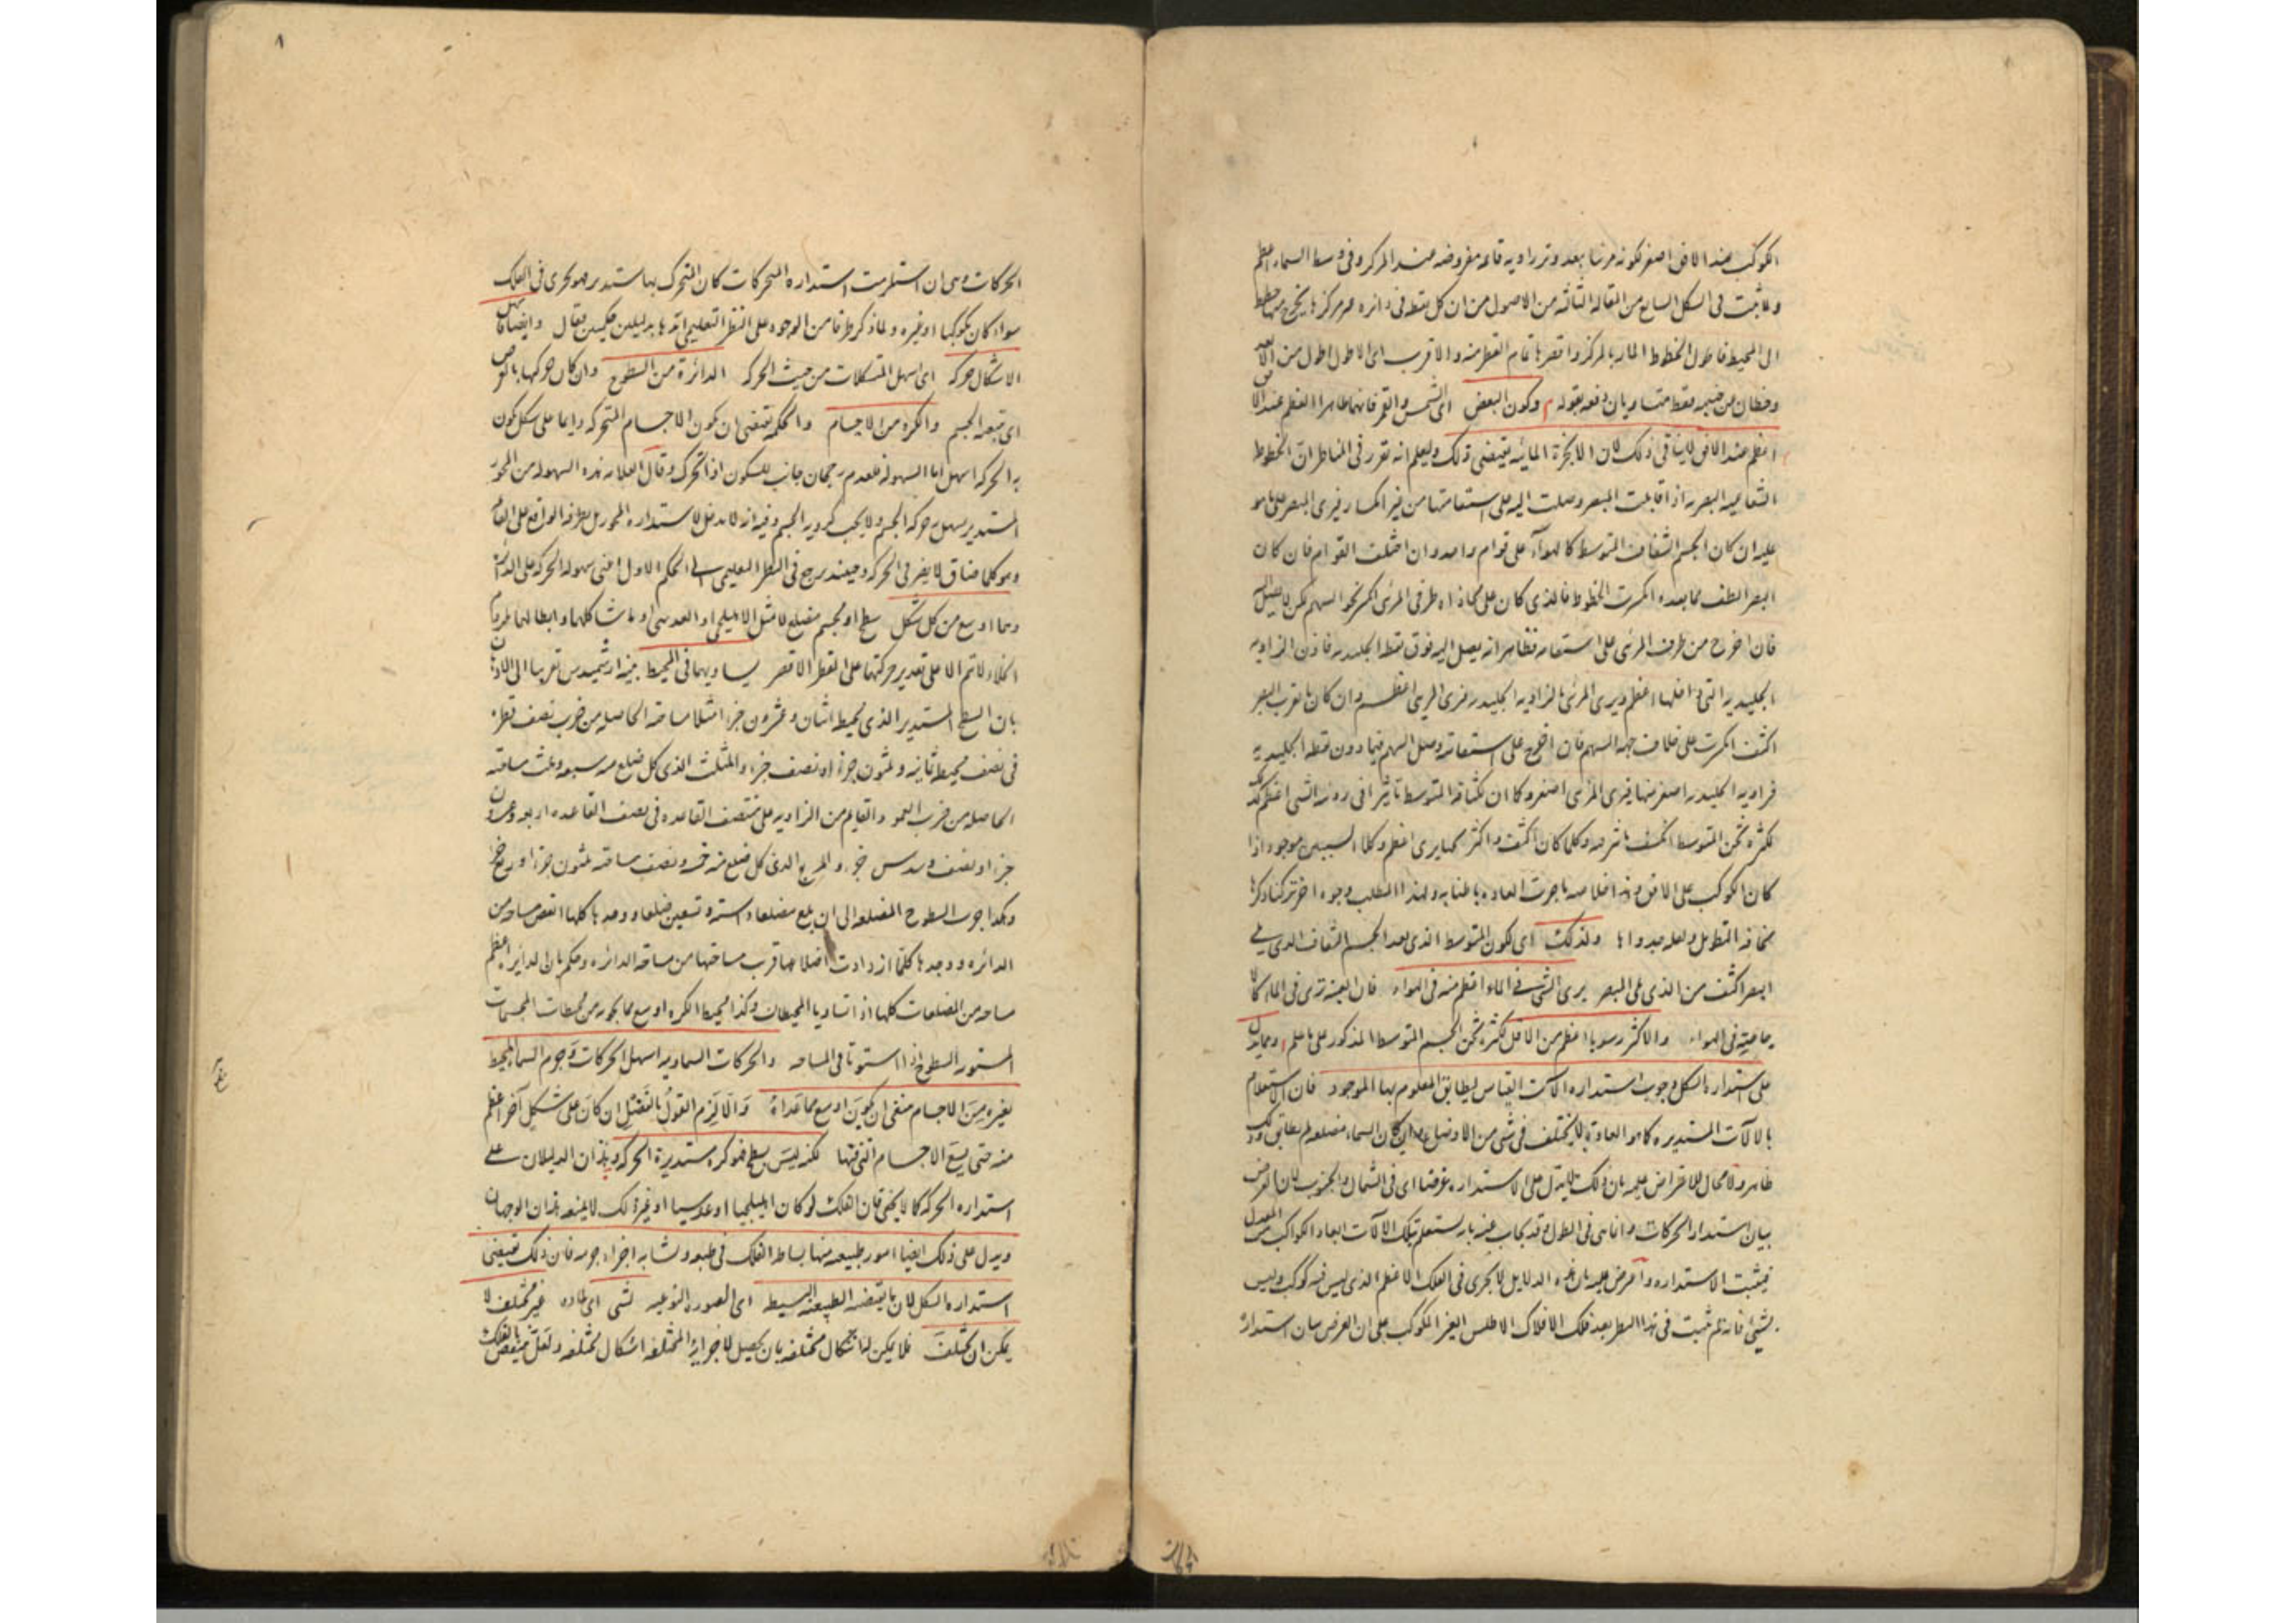 الكوكب عند الافق اصغر لكونه مرئيا بعد وتر زاويه قاعه مفروضه عند المركز وفى وسط السماء اعظم
ولما ثبت فى الشكل السابع من المقاله الثالثه من الاصول من ان كل نقطه فى دائره غير مركزها يخرج منها خطوط
الى المحيط فاطول الخطوط المار بالمركز واقصرها تمام القطر منه والاقرب الى الاطول اطول من الابعد
وخطان من جنبيه فقط متساويان دفعه بقوله وكون البعض اى الشمس والقمر فانهما ظاهرا العظم عند الافق
اعظم عند الافق لا ينافى ذلك لان الابخرة المائيه يقتضى ذلك وليعلم انه تقرر فى المناظر ان الخطوط
الشعاعيه البصريه اذا قابلت المبصر وصلت اليه على استقامتها من غير انكسار فيرى المبصر على ما هو
عليه ان كان الجسم الشفاف المتوسط كالهواء على قوام واحد وان اختلف القوام فان كان
البصر الطف مما بعده انكسرت الخطوط فالذى كان على محاذاه طرفى المرئى انكسر نحو السهم
فان اخرج من طرف المرئى على استقامته فظاهر انه يصل اليه فوق نقطه الجليديه فاذن الزاويه
الجليديه التى داخلها اعظم ويرى المرئى بالزاويه الجليديه فيرى المرئى اعظم وان كان ما يقرب البصر
اكثف انكسرت على خلاف جهه السهم فان اخرج على استقامته وصل السهم فيما دون نقطه الجليديه
فزاويه الجليديه اصغر منها فيرى المرئى اصغر وكما ان لكثافه المتوسط تاثيرا فى رؤيه الشى اعظم كذلك
لكثره ثخن المتوسط الكثيف تاثير فيه وكلما كان اكثف واكثر ثخنا يرى اعظم وكلا السببين موجود اذا
كان الكوكب على الافق وهذه خلاصه ما جرت العاده باطنابه ولهذا المطلب وجوه اخر تركنا ذكرها
مخافه التطويل ولعله عيد واها ولذلك اى لكون المتوسط الذى بعد الجسم الشفاف الذى يلى
البصر اكثف من الذى يلى البصر يرى الشى فى الماء اعظم منه فى الهواء فان العنبه ترى فى الماء كالا
جاصة فى الهواء والاكثر رسوبا اعظم من الاقل لكثره ثخن الجسم المتوسط المذكور على ما علم ومما يدل
على استدارة الشكل وجوب استدارة الآلات القياس ليطابق المعلوم بها الموجود فان الاستعلام
بالآلات المستديره كما هو العادة لا يختلف فى شى من الاوضاع ان كان السماء مضلعه لم يطابق وذلك
ظاهر ولا مجال للاعتراض عليه بان ذلك لا يدل على الاستداره عرضا اى فى الشمال والجنوب لان الغرض
بيان استدار الحركات وانما هى فى الطول وقد يجاب عنه بان يستعلم بتلك الآلات ابعاد الكواكب من المعدل
فيثبت الاستداره واعترض عليه بان هذه الدلايل لا يجرى فى الفلك الاعظم الذى ليس فيه كوكب وليس
بشى فانه لم يثبت فى هذا النظر بعد فلك الافلاك الاطلس الغير المكوكب على ان الغرض بيان استدارة
٨
الحركات وهى ان استلزمت استداره المتحركات كان المتحرك بها مستديرا وهو يجرى فى الفلك
سواء كان مكوكبا او غيره ولما ذكر طرفا من الوجوه على النظر التعليمى ايده بدليلين حكميين فقال وايضا اسهل
الاشكال حركه اى اسهل المتشكلات من حيث الحركه الدائرة من السطوح وان كان حركتها بالعرض
اى بتبعيه الجسم والكره من الاجسام والحكمه يقتضى ان يكون الاجسام المتحركه دايما على شكل يكون
به الحركه اسهل اما السهوله فلعدم رجحان جانب للسكون اذا تحرك وقال العلامه هذه السهوله من المحور
المستدير يسهل حركه الجسم ولا يجب كرويه الجسم وفيه انه لا مدخل لاستداره المحور بل لطرفه الواقع على القائم
وهو كلما ضاق لا يضر فى الحركه وحينئذ يرجع فى النظر التعليمى الى الحكم الاول اعنى سهوله الحركه على الدائره
وهما اوسع من كل شكل سطح او مجسم مضلع لا مثل الاهليلجى او العدسى او ما شاكلهما وابطالهما بلزوم
الخلاء لا تتم الا على تقدير حركتهما على القطر الاقصر يساويهما فى المحيط بينه ارشميدس تقريبا الى الاذهان
بان السطح المستدير الذى محيطه اثنان وعشرون جزءا مثلا مساحته الحاصله من ضرب نصف قطره
فى نصف محيطه ثمانيه وثلثون جزءا ونصف جزء والمثلث الذى كل ضلع منه سبعه وثلث مساحته
الحاصله من ضرب العمود القايم من الزاويه على منتصف القاعده فى نصف القاعده اربعه وعشرون
جزءا ونصف وسدس جزء والمربع الذى كل ضلع منه خمسه ونصف مساحته ثلثون جزءا وربع جزء
وهكذا جرب السطوح المضلعه الى ان بلغ مضلعا ذا سته وتسعين ضلعا ووجدها كلها انقص مساحه من
الدائره ووجدها كلما ازدادت اضلاعها قرب مساحتها من مساحه الدائره وحكم بان الدايره اعظم
مساحه من المضلعات كلها اذا تساويا المحيطان وكذا محيط الكره اوسع مما يحويه من محيطات المجسمات
المستويه السطوح اذا استوتا فى المساحه والحركات السماويه اسهل الحركات وجرم السماء المحيط
بغيره من الاجسام ينبغى ان يكون اوسع مما عداه والا لزم القول بالتضئل ان كان على شكل آخر اعظم
منه حتى يسع الاجسام التى فيها لكنه ليس بسطح فهو كره مستديرة الحركه وهذان الدليلان على
استداره الحركه كما لا يخفى فان الفلك لو كان اهليلجيا او عدسيا او غير ذلك لا يمنعه هذان الوجهان
ويدل على ذلك ايضا امور طبيعيه منها بساطه الفلك فى طبعه وتشابه اجزاء جرمه فان ذلك يقتضى
استداره الشكل لان ما يقتضيه الطبيعه البسيطه اى الصوره النوعيه لشى اى لماده غير مختلفه لا
يمكن ان يختلف فلا يمكن لها اشكال مختلفه بان يحصل لاجزائه المختلفه اشكال مختلفه